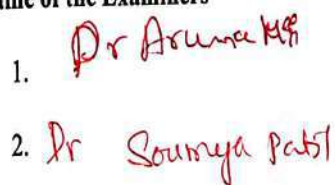 me of the Examiners
1. Dr Aruna
2. Dr Soumya Patil